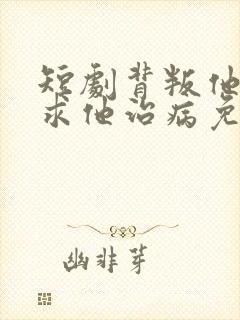 短劇背叛他
求他治病免
幽非芽